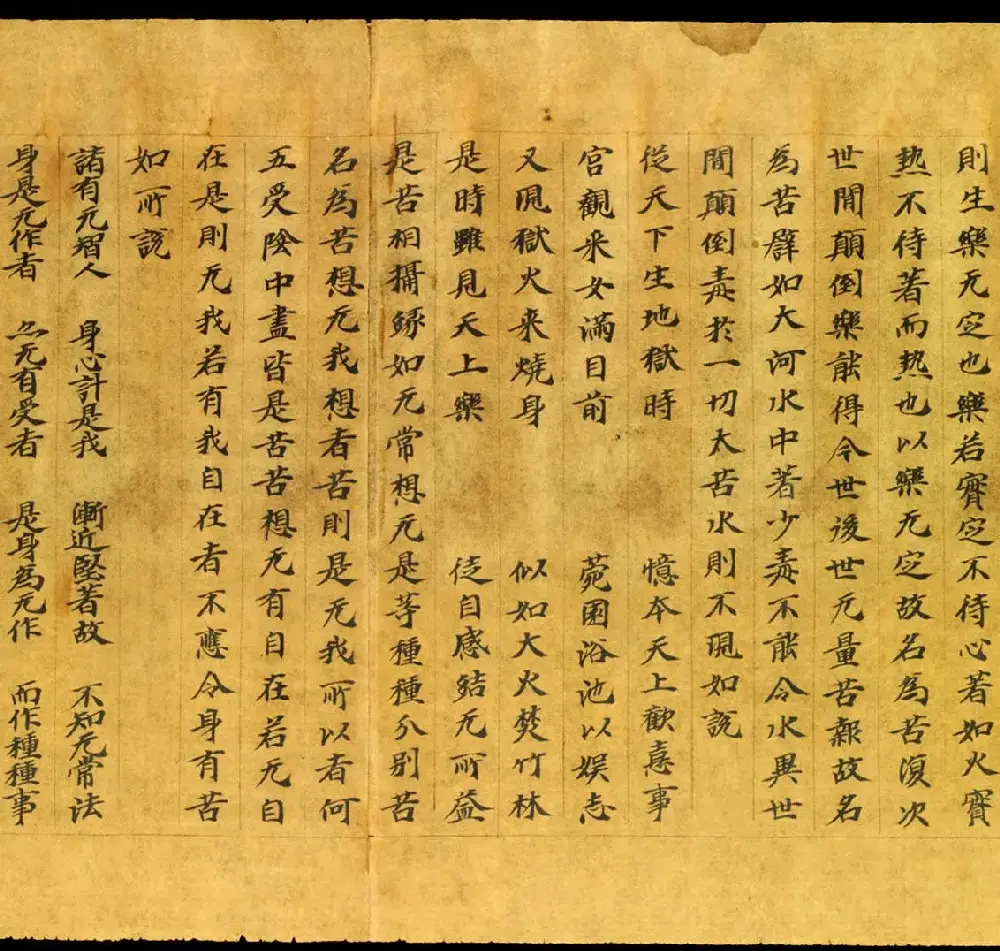 則生樂无定也樂若實定不待心著如火實
熱不待著而熱也以樂无定故名為苦湏次
世間顛倒樂能得今世後世无量苦報故名
為苦譬如大河水中著少毒不能令水異世
間顛倒毒於一切大苦水則不現如說
從天下生地獄時 憶本天上歡憙事
宮觀采女滿目前 菀園浴池以娛志
又現獄火来燒身 似如大火焚竹林
是時雖見天上樂 徒自感結无所益
是苦相攝緣如无常想无是等種種分別苦
名為苦想无我想者苦則是无我所以者何
五受陰中盡皆是苦苦想无有自在若无自
在是則无我若有我自在者不應令身有苦
如所說
諸有无智人 身心計是我 漸近堅著故 不知无常法
身是无作者 亦无有受者 是身為无作 而作種種事